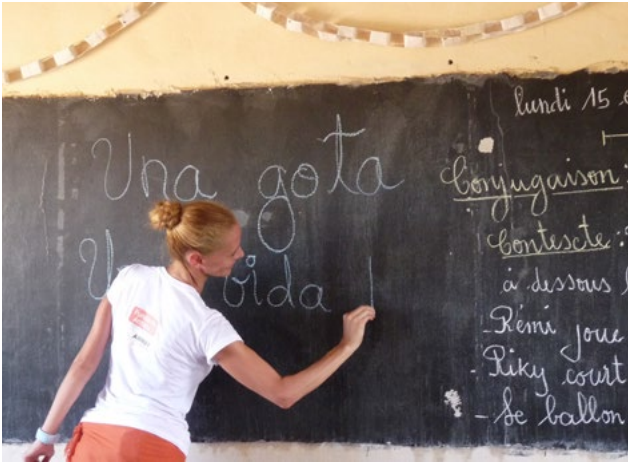 Una gota
vida !
lundi 15
Conjugaison :
Contescte :
à dessous
- Rémi joue
- Riky court
- Le ballon